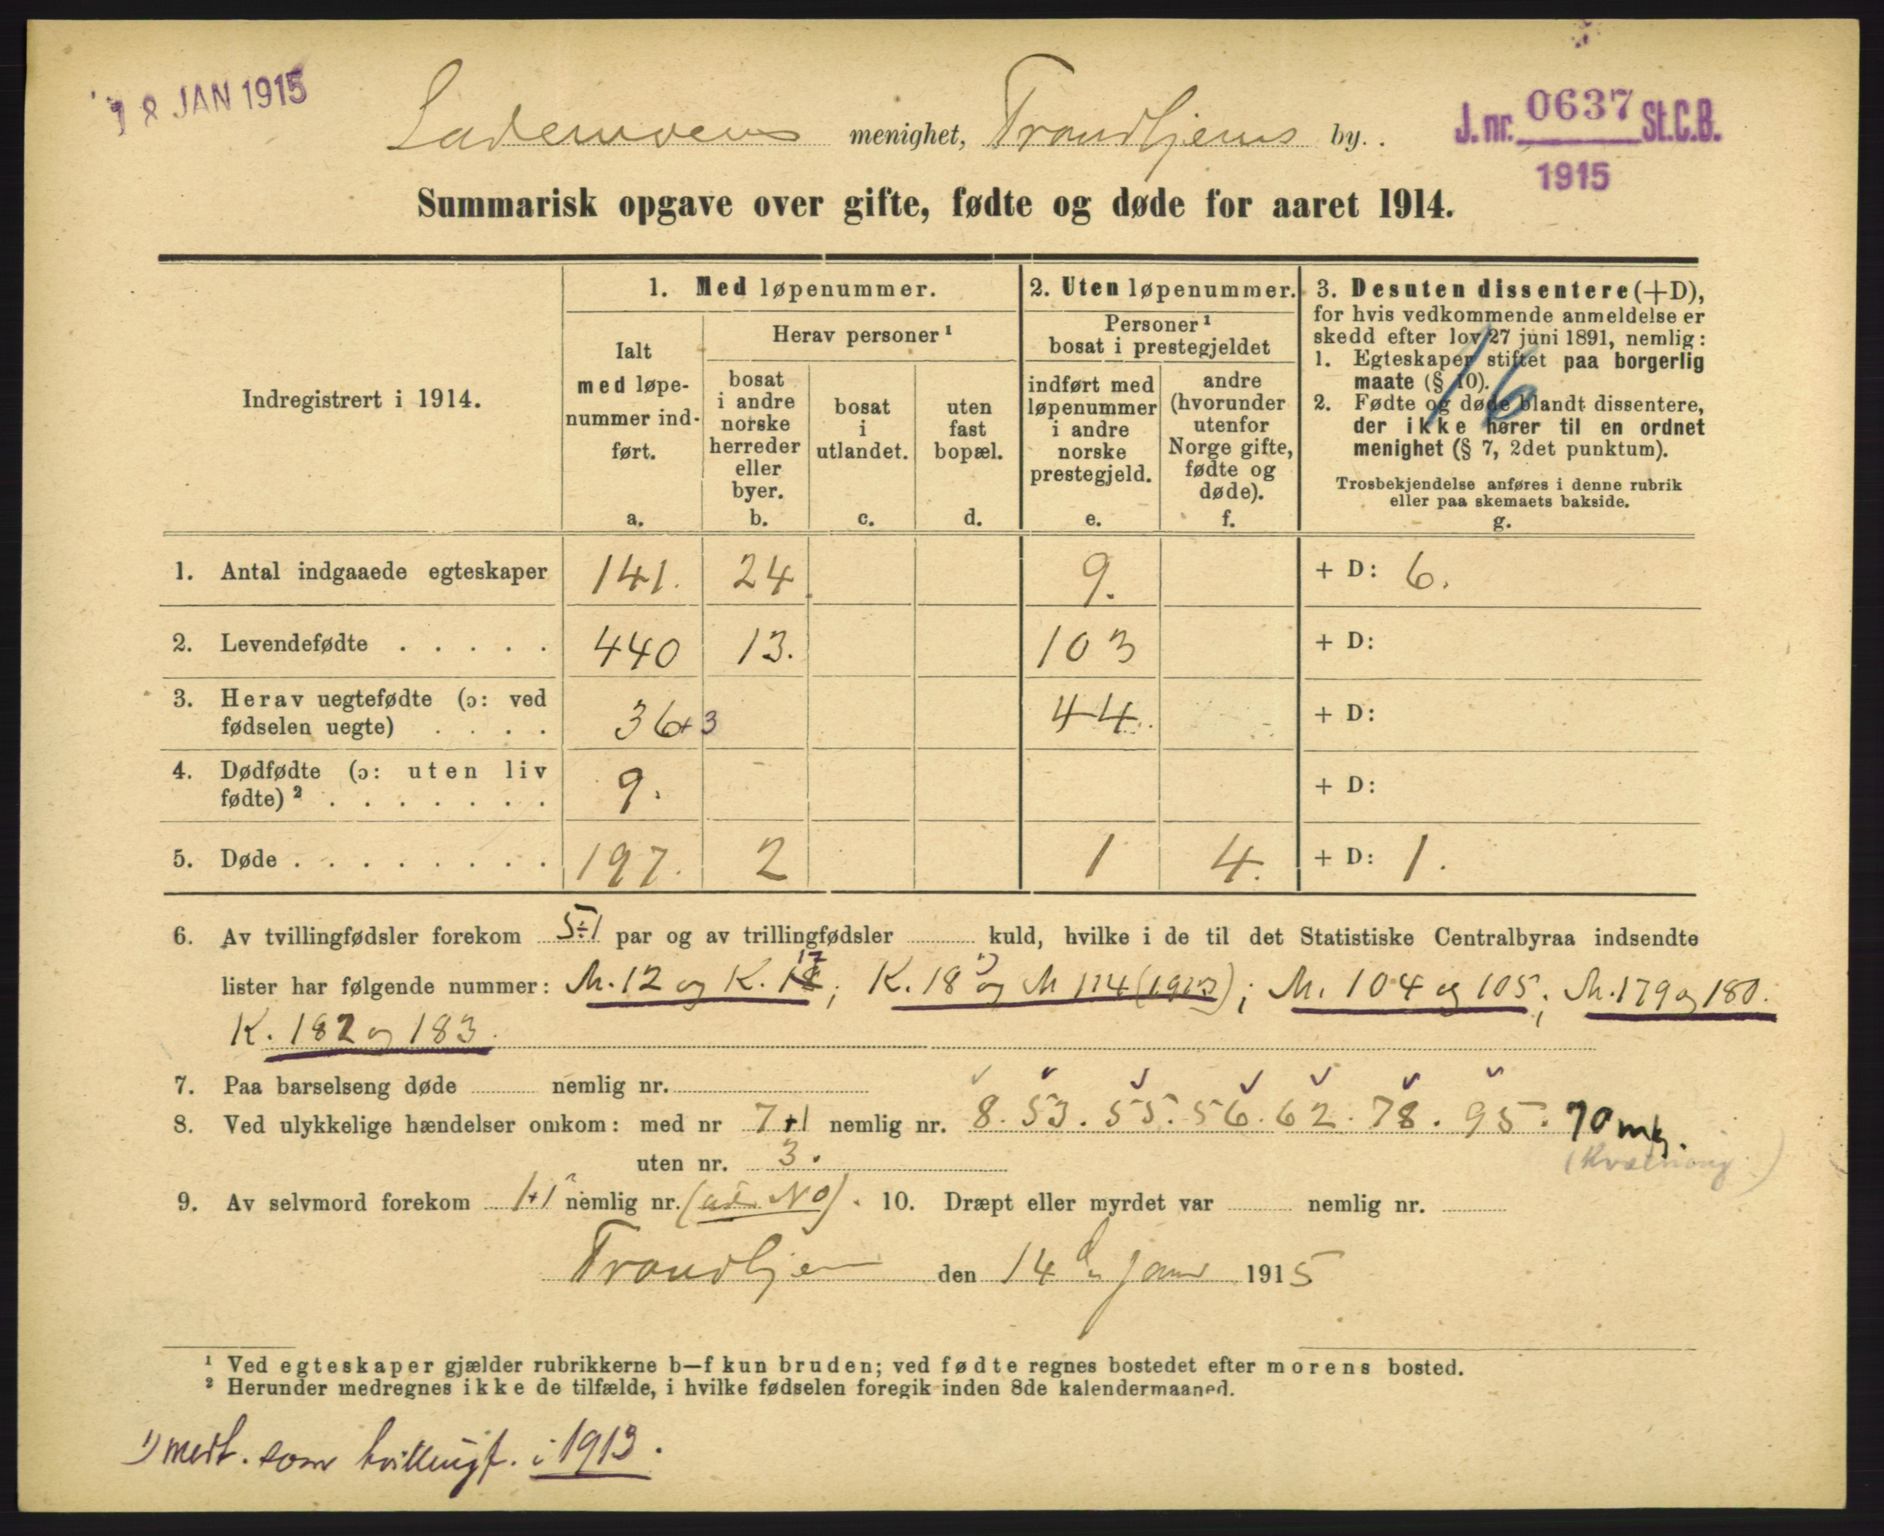 18 JAN 1915
Lademoens menighet, Trondhjems by.
J. nr. 0637 St.C.B.
1915
Summarisk opgave over gifte, fødte og døde for aaret 1914.
Indregistrert i 1914.
1. Med løpenummer.
Ialt med løpenummer indført.
a.
Herav personer¹
bosat i andre norske herreder eller byer.
b.
bosat i utlandet.
c.
uten fast bopæl.
d.
2. Uten løpenummer.
Personer¹ bosat i prestegjeldet
indført med løpenummer i andre norske prestegjeld.
e.
andre (hvorunder utenfor Norge gifte, fødte og døde).
f.
3. Desuten dissentere (+D),
for hvis vedkommende anmeldelse er
skedd efter lov 27 juni 1891, nemlig:
1. Egteskaper stiftet paa borgerlig
maate (§ 10).
2. Fødte og døde blandt dissentere,
der ikke hører til en ordnet
menighet (§ 7, 2det punktum).
Trosbekjendelse anføres i denne rubrik
eller paa skemaets bakside.
g.
16
1. Antal indgaaede egteskaper 141. 24 9. + D: 6.
2. Levendefødte . . . . . 440 13. 103 + D:
3. Herav uegtefødte (ɔ: ved
fødselen uegte) . . . . 36+3 44. + D:
4. Dødfødte (ɔ: uten liv
fødte)² . . . . . . . 9. + D:
5. Døde . . . . . . . . 197. 2 1 4. + D: 1.
6. Av tvillingfødsler forekom 5÷1 par og av trillingfødsler kuld, hvilke i de til det Statistiske Centralbyraa indsendte
lister har følgende nummer: M. 12 og K. 17; K. 18 ¹) og M 114 (1913); M. 104 og 105; M. 179 og 180.
K. 182 og 183.
7. Paa barselseng døde nemlig nr.
8. Ved ulykkelige hændelser omkom: med nr 7+1 nemlig nr. 8. 53. 55. 56. 62. 78. 95. 70 mk.
uten nr. 3.
9. Av selvmord forekom 1+1 nemlig nr. (ud. No). 10. Dræpt eller myrdet var nemlig nr.
Trondhjem den 14 de Janr 1915
¹ Ved egteskaper gjælder rubrikkerne b—f kun bruden; ved fødte regnes bostedet efter morens bosted.
² Herunder medregnes ikke de tilfælde, i hvilke fødselen foregik inden 8de kalendermaaned.
¹) medt. som tvillingf. i 1913.